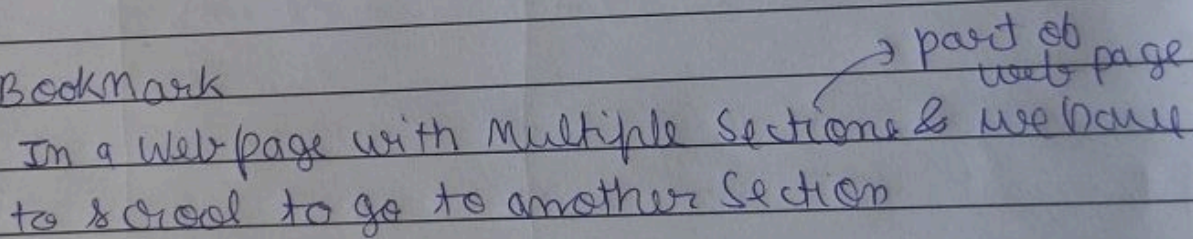 → part of
web page
Bookmark
In a Web page with Multiple Sections & we have
to scrool to go to another Section